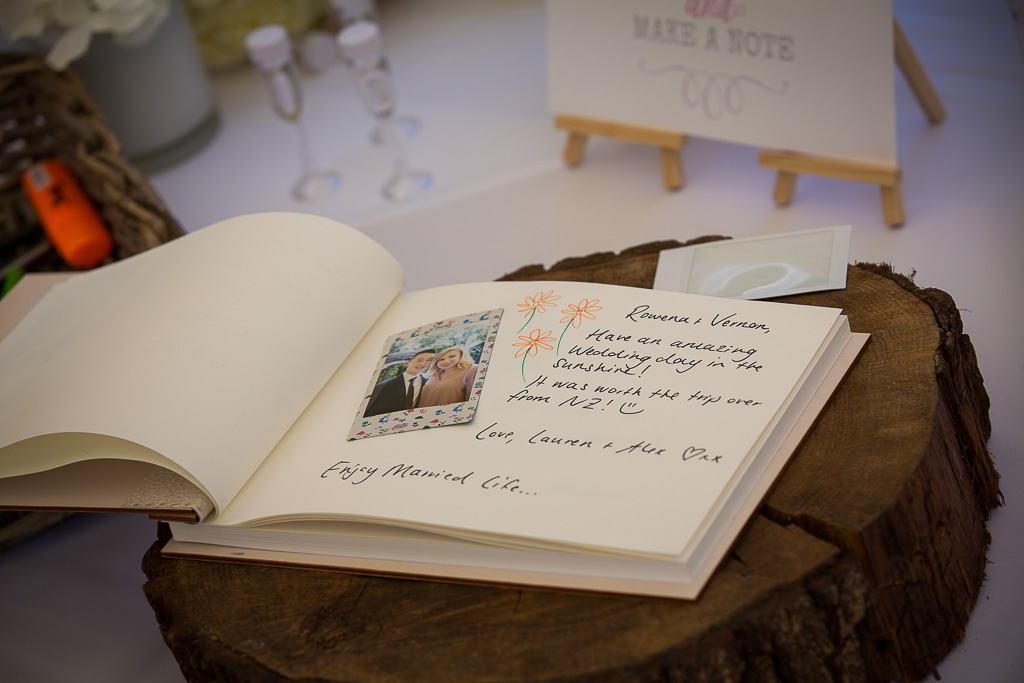 and
MAKE A NOTE
Rowena + Vernon,
Have an amazing
Wedding day in the
sunshine!
It was worth the trip over
from NZ! :)
Love, Lauren + Alex ♡xx
Enjoy Married Life...